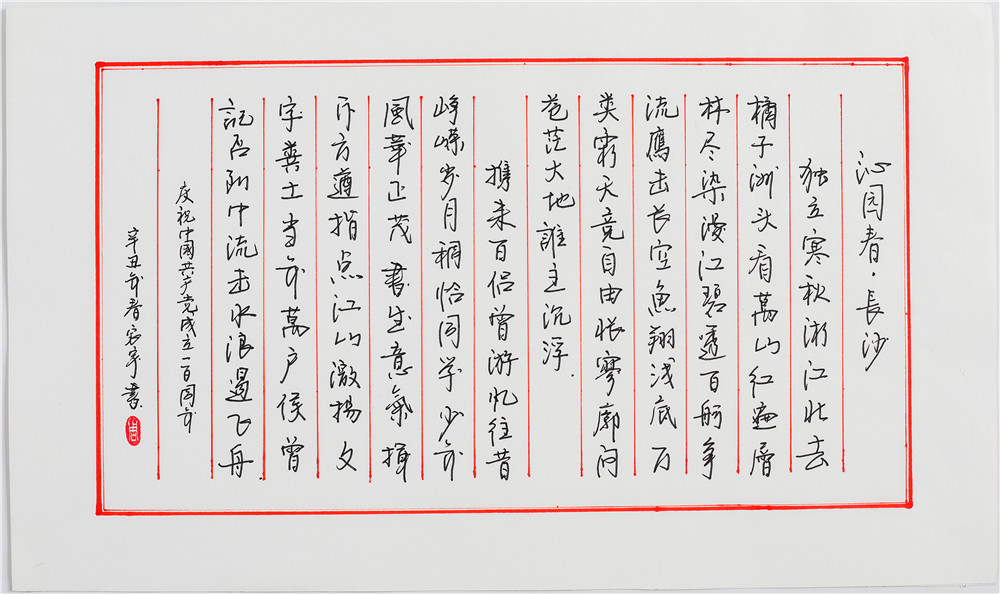 沁园春·長沙
独立寒秋湘江北去
橘子洲头看萬山红遍層
林尽染漫江碧透百舸争
流鷹击长空魚翔浅底万
类霜天竞自由怅寥廓问
苍茫大地誰主沉浮.
携来百侣曾游忆往昔
峥嵘岁月稠恰同学少年
風華正茂書生意氣揮
斥方遒指点江山激揚文
字糞土当年萬户侯曾
記否到中流击水浪遏飞舟.
庆祝中國共产党成立一百周年
辛丑年春宏宇書